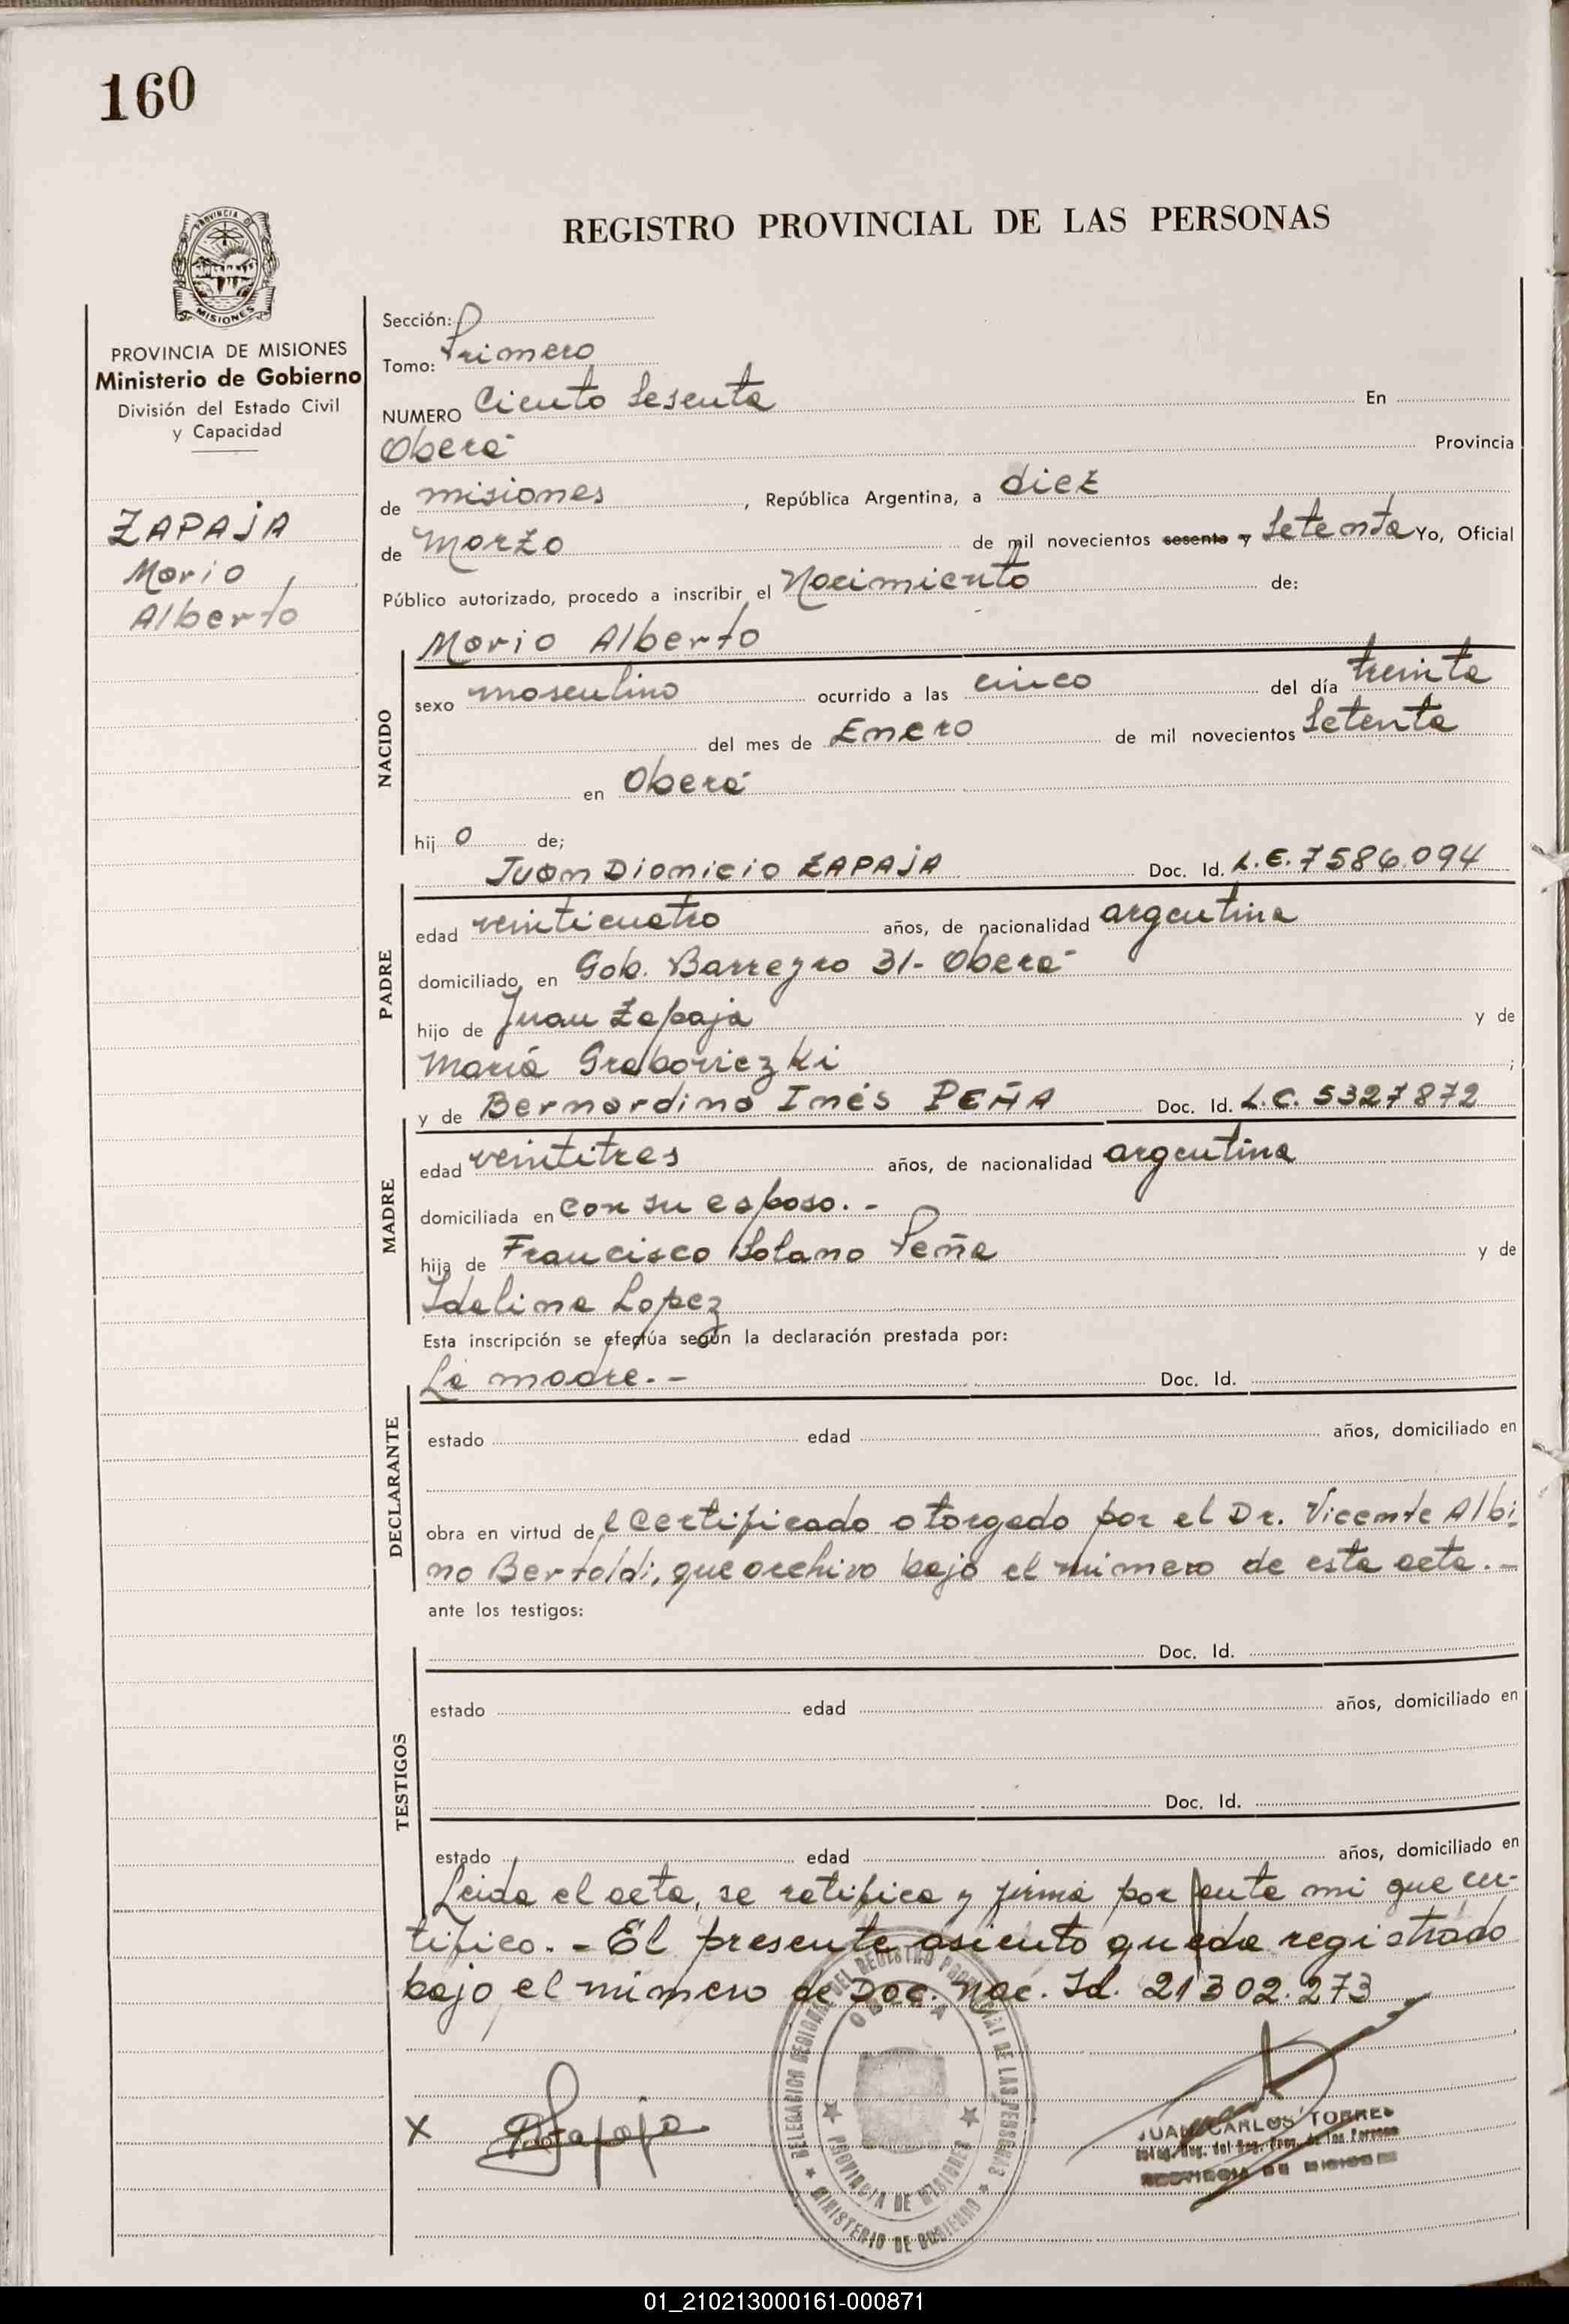 160
PROVINCIA DE
MISIONES
REGISTRO PROVINCIAL DE LAS PERSONAS
PROVINCIA DE MISIONES
Ministerio de Gobierno
División del Estado Civil
y Capacidad
ZAPAJA
Mario
Alberto
Sección:
Tomo: Primero
NUMERO Ciento Sesenta En
Oberá Provincia
de misiones, República Argentina, a diez
de Marzo de mil novecientos sesenta y Setenta Yo, Oficial
Público autorizado, procedo a inscribir el Nacimiento de:
Mario Alberto
NACIDO
sexo masculino ocurrido a las cinco del día treinta
del mes de Enero de mil novecientos Setenta
en Oberá
hijo de;
Juan Dionicio ZAPAJA Doc. Id. L.E. 7586.094
PADRE
edad veinticuatro años, de nacionalidad argentina
domiciliado en Gob. Barreyro 31- Oberá
hijo de Juan Zapaja y de
María Graboviezki ;
y de Bernardina Inés PEÑA Doc. Id. L.C. 5327872
MADRE
edad veintitres años, de nacionalidad argentina
domiciliada en con su esposo. -
hija de Francisco Solano Peña y de
Idalina Lopez
Esta inscripción se efectúa según la declaración prestada por:
La madre. - Doc. Id.
DECLARANTE
estado edad años, domiciliado en
obra en virtud de l certificado otorgado por el Dr. Vicente Albi
no Bertoldi, que archivo bajo el número de esta acta. -
ante los testigos:
Doc. Id.
TESTIGOS
estado edad años, domiciliado en
Doc. Id.
estado edad años, domiciliado en
Leida el acta, se ratifica y firma por ante mi que cer-
tifico. - El presente asiento queda registrado
bajo el número de Doc. Nac. Id. 21302.273
DELEGACION REGIONAL DEL REGISTRO PROVINCIAL DE LAS PERSONAS
OBERA
PROVINCIA DE MISIONES
MINISTERIO DE GOBIERNO
X
JUAN CARLOS TORRES
01_210213000161-000871